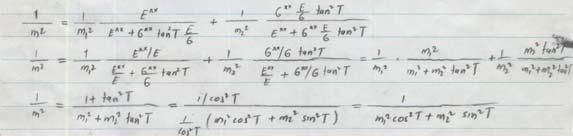 1/m² = 1/m₁² E^xx / (E^xx + G^xx tan²T E/G) + 1/m₂² (G^xx E/G tan²T) / (E^xx + G^xx E/G tan²T)
1/m² = 1/m₁² (E^xx/E) / (E^xx/E + G^xx/G tan²T) + 1/m₂² (G^xx/G tan²T) / (E^xx/E + G^xx/G tan²T) = 1/m₁² · m₁² / (m₁² + m₂² tan²T) + 1/m₂² m₂² tan²T / (m₁² + m₂² tan²T)
1/m² = (1 + tan²T) / (m₁² + m₂² tan²T) = (1/cos²T) / (1/cos²T (m₁² cos²T + m₂² sin²T)) = 1 / (m₁² cos²T + m₂² sin²T)